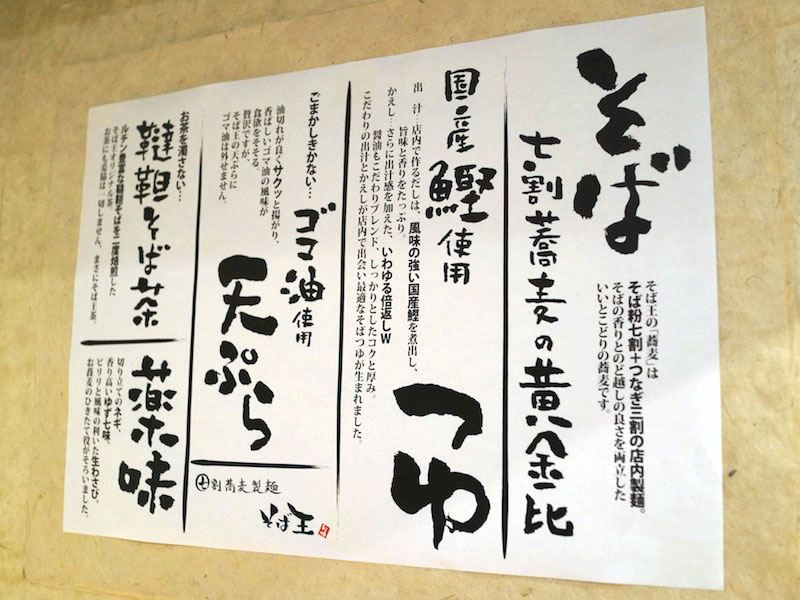 そば
七割蕎麦の黄金比
そば王の「蕎麦」は
そば粉七割＋つなぎ三割の店内製麺。
そばの香りとのど越しの良さを両立した
いいとこどりの蕎麦です。
国産鰹使用
つゆ
出　汁…店内で作るだしは、風味の強い国産鰹を煮出し、
旨味と香りをたっぷり。
かえし…さらに出汁感を加えた、いわゆる倍返しW
醤油もこだわりブレンド、しっかりとしたコクと厚み。
こだわりの出汁とかえしが店内で出会い最適なそばつゆが生まれました。
ごまかしきかない…
ゴマ油使用
天ぷら
油切れが良くサクッと揚がり、
香ばしいゴマ油の風味が
食欲をそそる。
贅沢ですが、
そば王の天ぷらに
ゴマ油は外せません。
七割蕎麦製麺
そば王
お茶を濁さない…
韃靼そば茶
ルチン豊富な韃靼そばを二度焙煎した
そば王オリジナル茶。
お茶にも妥協は一切しません、まさにそば王茶。
薬味
切り立てのネギ、
香り高いゆず七味、
ピリリと風味の利いた生わさび。
お蕎麦のひきたて役がそろいました。